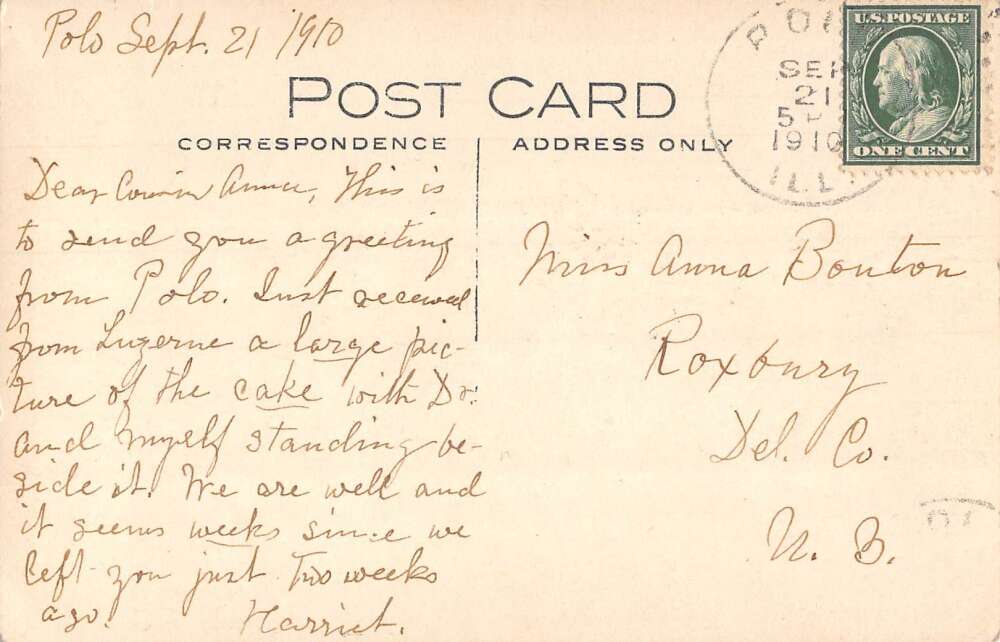 Polo Sept. 21 1910
U.S. POSTAGE
ONE CENT
PO
SEP
21
5
1910
ILL.
POST CARD
CORRESPONDENCE
ADDRESS ONLY
Dear Cousin Anna, This is
to send you a greeting
from Polo. Just received
from Luzerne a large pic-
ture of the cake with Dr.
and myself standing be-
side it. We are well and
it seems weeks since we
left you just two weeks
ago. Harriet.
Miss Anna Bouton
Roxbury
Del. Co.
N. Y.